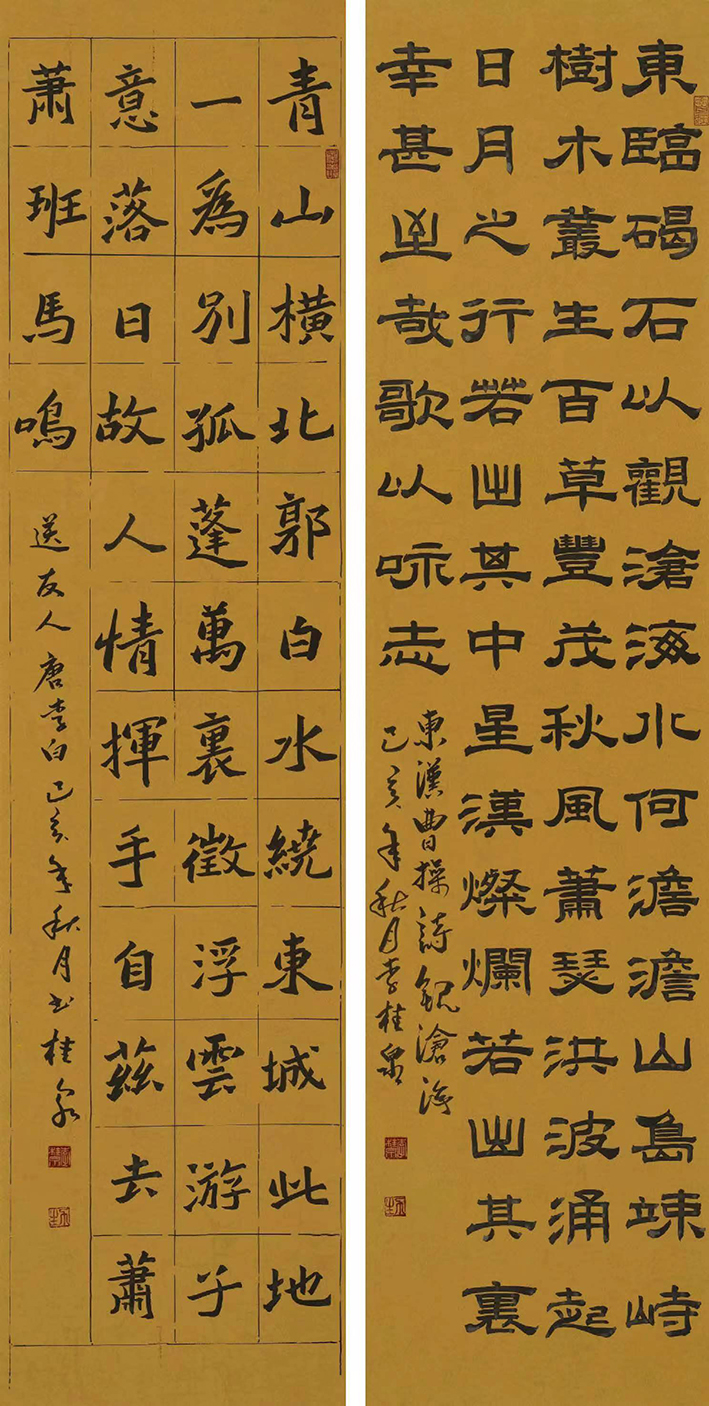 東臨碣石以觀滄海水何澹澹山島竦峙
樹木叢生百草豐茂秋風蕭瑟洪波涌起
日月之行若出其中星漢燦爛若出其裏
幸甚至哉歌以咏志
東漢曹操詩觀滄海
己亥年秋月李桂泉
青山橫北郭白水繞東城此地
一爲別孤蓬萬裏徵浮雲游子
意落日故人情揮手自茲去蕭
蕭班馬鳴
送友人唐李白己亥年秋月書桂泉